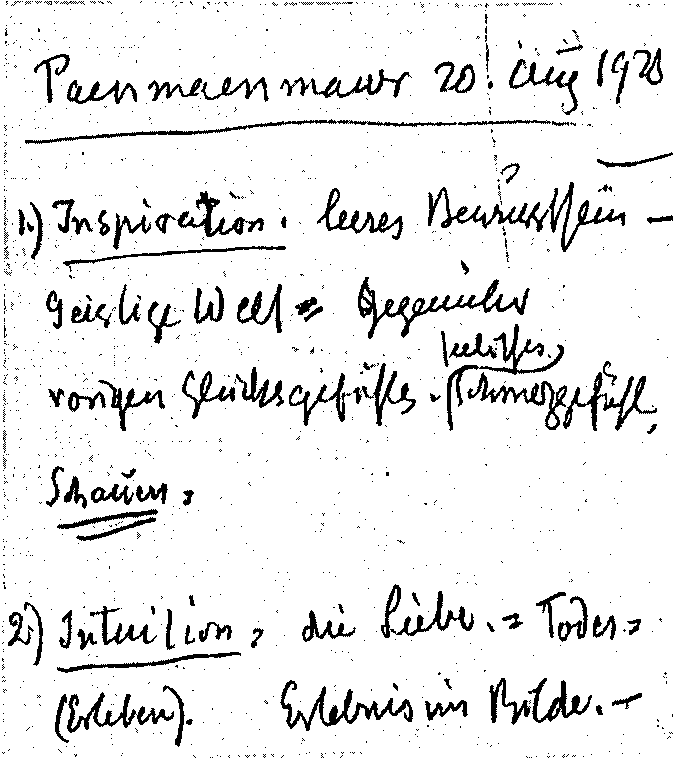 Paenmaenmawr 20. Aug 1923
1.) Inspiration. leeres Bewußtsein –
Geistige Welt = Gegenüber
seelisches
vorigen Glücksgefühles. Schmerzgefühl,
Schauen =
2.) Intuition = die Liebe. = Todes =
(Erleben). Erlebnis im Bilde. –